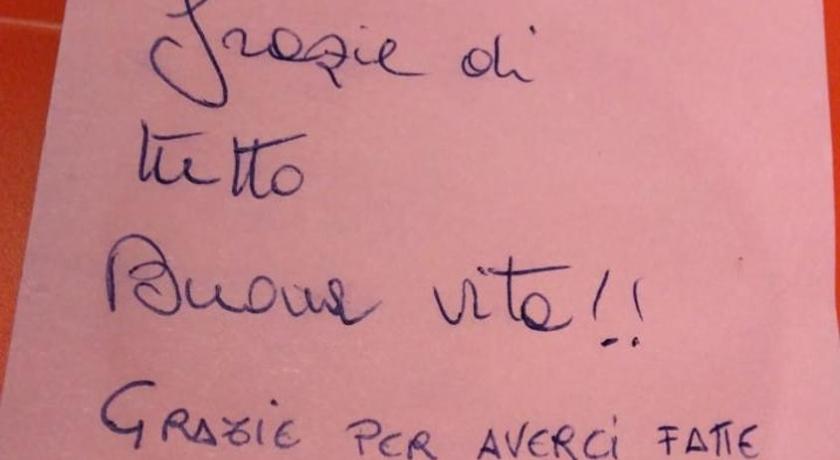 Grazie di
tutto
Buona vita!!
GRAZIE PER AVERCI FATTE